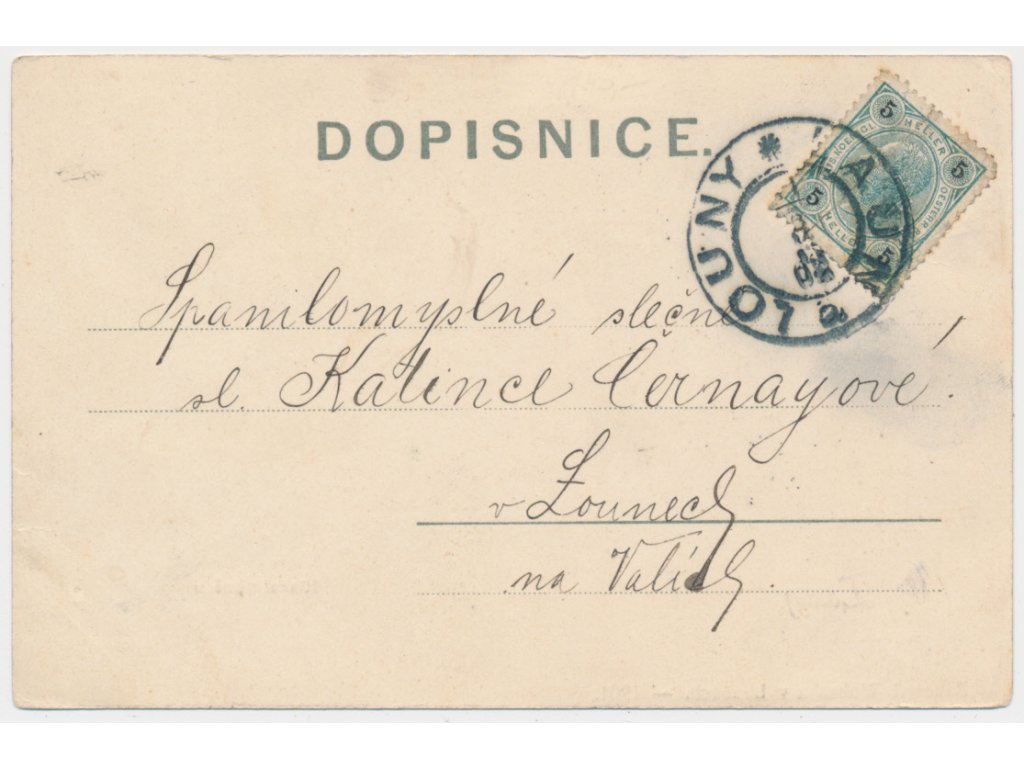 DOPISNICE.
LOUNY * LAUN
5 HELLER 5
5 HELLER 5
Spanilomyslné slečně
sl. Katince Černayové.
v Lounech
na Valích.